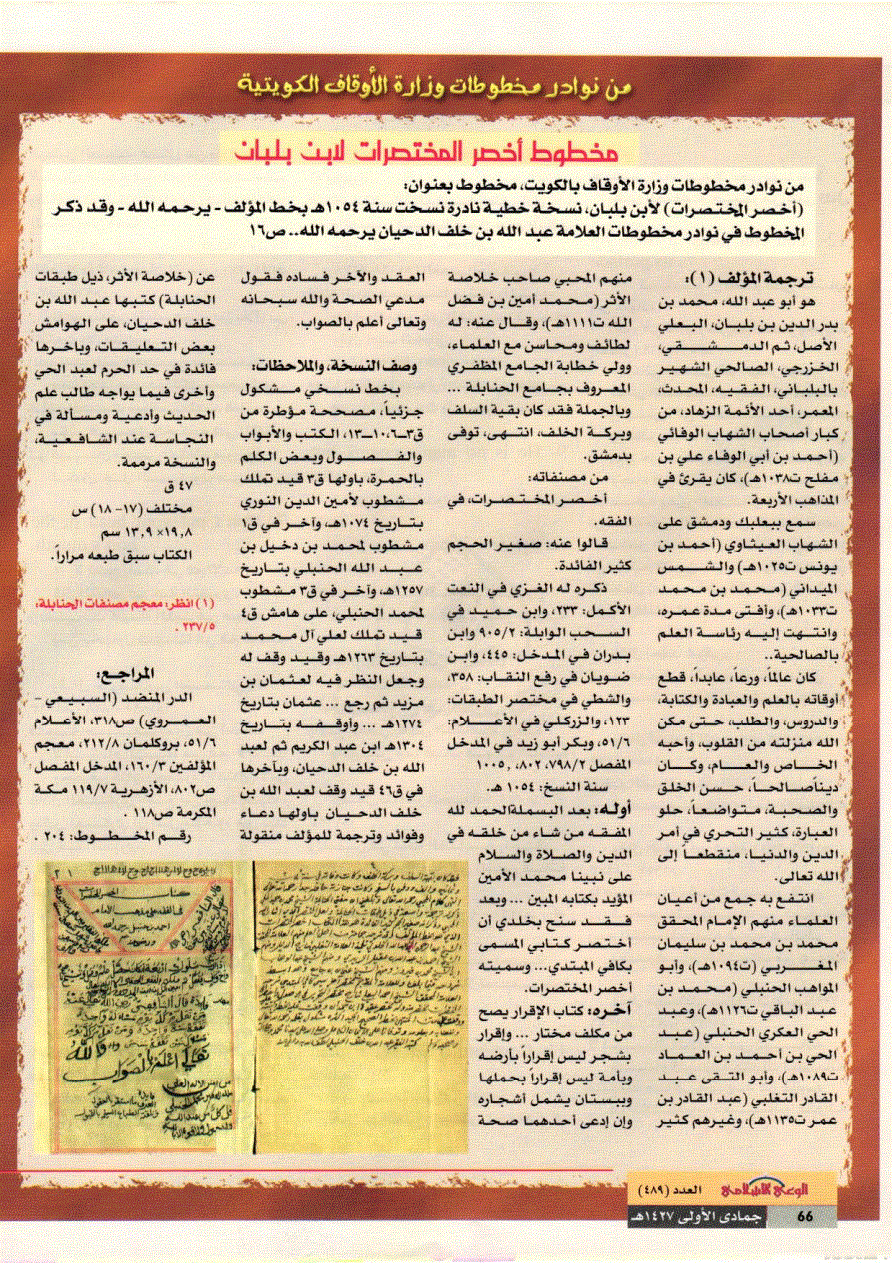 من نوادر مخطوطات وزارة الأوقاف الكويتية
مخطوط أخصر المختصرات لابن بلبان
من نوادر مخطوطات وزارة الأوقاف بالكويت، مخطوط بعنوان:
(أخصر المختصرات) لأبن بلبان، نسخة خطية نادرة نسخت سنة ١٠٥٤هـ بخط المؤلف - يرحمه الله - وقد ذكر
المخطوط في نوادر مخطوطات العلامة عبد الله بن خلف الدحيان يرحمه الله.. ص١٦
ترجمة المؤلف (١):
هو أبو عبد الله، محمد بن
بدر الدين بن بلبان، البعلي
الأصل، ثم الدمشقي،
الخزرجي، الصالحي الشهير
بالبلباني، الفقيه، المحدث،
المعمر، أحد الأئمة الزهاد، من
كبار أصحاب الشهاب الوفائي
(أحمد بن أبي الوفاء علي بن
مفلح ت١٠٣٨هـ)، كان يقرئ في
المذاهب الأربعة.
سمع ببعلبك ودمشق على
الشهاب العيثاوي (أحمد بن
يونس ت١٠٢٥هـ) والشمس
الميداني (محمد بن محمد
ت١٠٣٣هـ)، وأفتى مدة عمره،
وانتهت إليه رئاسة العلم
بالصالحية..
كان عالماً، ورعاً، عابداً، قطع
أوقاته بالعلم والعبادة والكتابة،
والدروس، والطلب، حتى مكن
الله منزلته من القلوب، وأحبه
الخاص والعام، وكان
ديناًصالحاً، حسن الخلق
والصحبة، متواضعاً، حلو
العبارة، كثير التحري في أمر
الدين والدنيا، منقطعاً إلى
الله تعالى.
انتفع به جمع من أعيان
العلماء منهم الإمام المحقق
محمد بن محمد بن سليمان
المغربي (ت١٠٩٤هـ)، وأبو
المواهب الحنبلي (محمد بن
عبد الباقي ت١١٢٦هـ)، وعبد
الحي العكري الحنبلي (عبد
الحي بن أحمد بن العماد
ت١٠٨٩هـ)، وأبو التقى عبد
القادر التغلبي (عبد القادر بن
عمر ت١١٣٥هـ)، وغيرهم كثير
منهم المحبي صاحب خلاصة
الأثر (محمد أمين بن فضل
الله ت١١١١هـ)، وقال عنه: له
لطائف ومحاسن مع العلماء،
وولي خطابة الجامع المظفري
المعروف بجامع الحنابلة ...
وبالجملة فقد كان بقية السلف
وبركة الخلف، انتهى، توفى
بدمشق.
من مصنفاته:
أخصر المختصرات، في
الفقه.
قالوا عنه: صغير الحجم
كثير الفائدة.
ذكره له الغزي في النعت
الأكمل: ٢٣٣، وابن حميد في
السحب الوابلة: ٩٠٥/٢ وابن
بدران في المدخل: ٤٤٥، وابن
ضويان في رفع النقاب: ٣٥٨،
والشطي في مختصر الطبقات:
١٢٣، والزركلي في الأعلام:
٥١/٦، وبكر أبو زيد في المدخل
المفصل ٧٩٨/٢، ٨٠٢، ١٠٠٥
سنة النسخ: ١٠٥٤ هـ.
أوله: بعد البسملةالحمد لله
المفقه من شاء من خلقه في
الدين والصلاة والسلام
على نبينا محمد الأمين
المؤيد بكتابه المبين ... وبعد
فقد سنح بخلدي أن
أختصر كتابي المسمى
بكافي المبتدي... وسميته
أخصر المختصرات.
آخره: كتاب الإقرار يصح
من مكلف مختار ... وإقرار
بشجر ليس إقراراً بأرضه
وبأمة ليس إقراراً بحملها
وببستان يشمل أشجاره
وإن إدعى أحدهما صحة
العقد والآخر فساده فقول
مدعي الصحة والله سبحانه
وتعالى أعلم بالصواب.
وصف النسخة، والملاحظات:
بخط نسخي مشكول
جزئياً، مصححة مؤطرة من
ق٣-١٠،٦-١٣، الكتب والأبواب
والفصول وبعض الكلم
بالحمرة، باولها ق٣ قيد تملك
مشطوب لأمين الدين النوري
بتاريخ ١٠٧٤هـ، وآخر في ق١
مشطوب لمحمد بن دخيل بن
عبد الله الحنبلي بتاريخ
١٢٥٧هـ، وآخر في ق٣ مشطوب
لمحمد الحنبلي، على هامش ق٤
قيد تملك لعلي آل محمد
بتاريخ ١٢٦٣هـ وقيد وقف له
وجعل النظر فيه لعثمان بن
مزيد ثم رجع ... عثمان بتاريخ
١٢٧٤هـ ... وأوقفه بتاريخ
١٣٠٤هـ ابن عبد الكريم ثم لعبد
الله بن خلف الدحيان، وبآخرها
في ق٤٦ قيد وقف لعبد الله بن
خلف الدحيان باولها دعاء
وفوائد وترجمة للمؤلف منقولة
عن (خلاصة الأثر، ذيل طبقات
الحنابلة) كتبها عبد الله بن
خلف الدحيان، على الهوامش
بعض التعليقات، وباخرها
فائدة في حد الحرم لعبد الحي
وأخرى فيما يواجه طالب علم
الحديث وأدعية ومسألة في
النجاسة عند الشافعية،
والنسخة مرممة.
٤٧ ق
مختلف (١٧- ١٨) س
١٩,٨×١٣,٩ سم
الكتاب سبق طبعه مراراً.
(١) انظر: معجم مصنفات الحنابلة:
٢٣٧/٥ .
المراجع:
الدر المنضد (السبيعي -
العمروي) ص٣١٨، الأعلام
٥١/٦، بروكلمان ٢١٢/٨، معجم
المؤلفين ١٦٠/٣، المدخل المفصل
ص٨٠٢، الأزهرية ١١٩/٧ مكة
المكرمة ص١١٨ .
رقم المخطوط: ٢٠٤ .
الوعي الإسلامي العدد (٤٨٩)
66 جمادى الأولى ١٤٢٧هـ